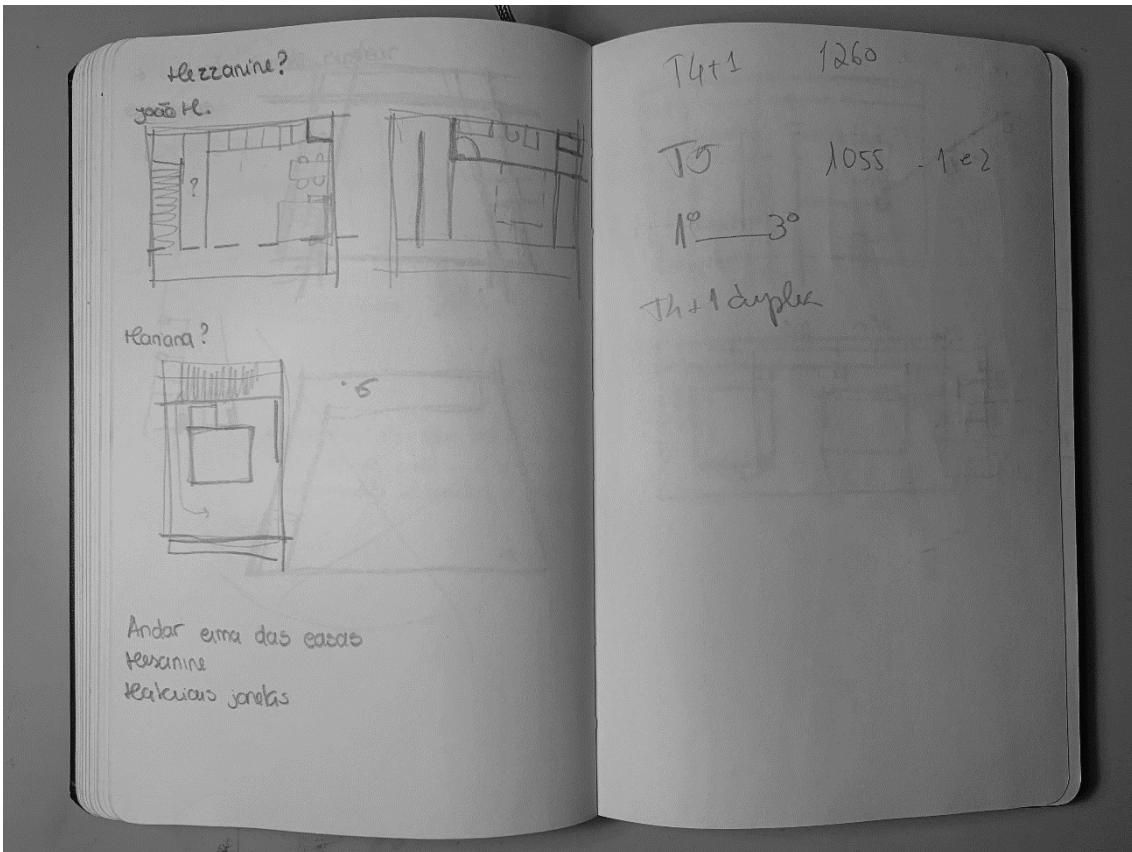 Mezzanine?
João M.
?
Mariana?
5
Andar cima das casas
Mesanine
Materiais janelas
T4+1 1260
T5 1055 - 1 e 2
1º 3º
T4+1 duplex